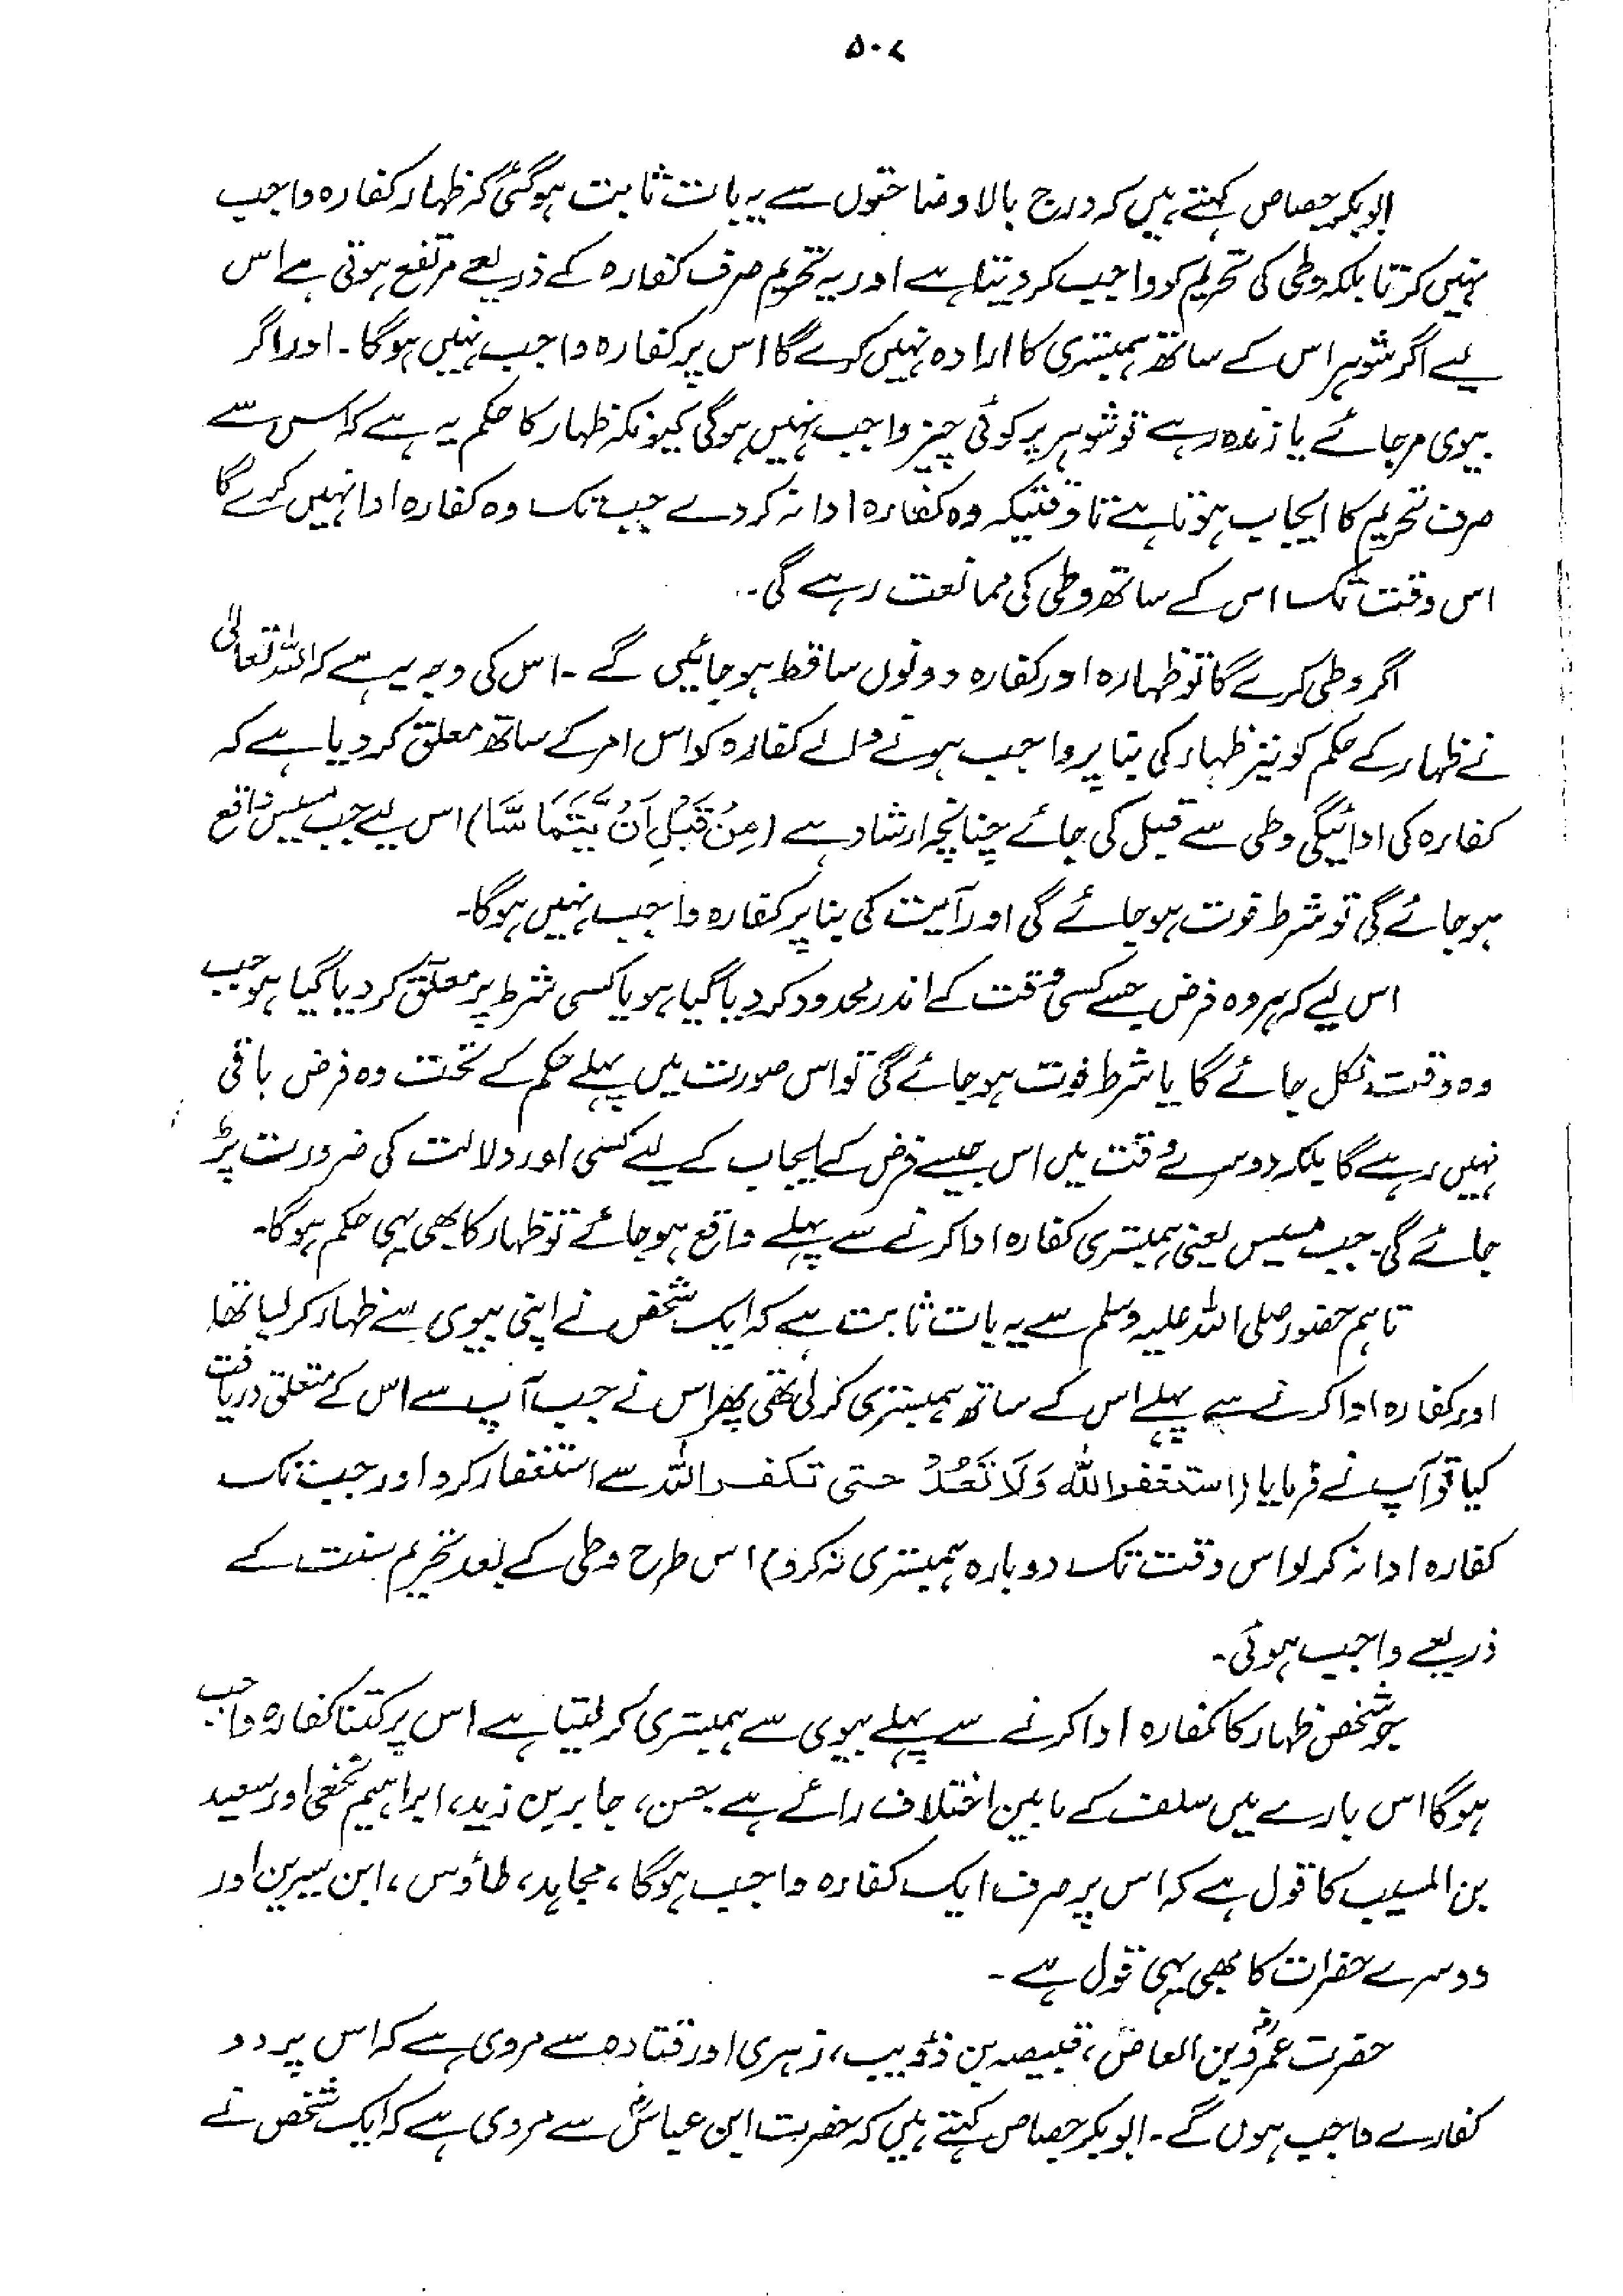 ۵۰۷
ابوبکر جصاص کہتے ہیں کہ درج بالا وضاحتوں سے یہ بات ثابت ہوگئی کہ ظہار کفارہ واجب
نہیں کرتا بلکہ وطی کی تحریم کو واجب کر دیتا ہے اور یہ تحریم صرف کفارہ کے ذریعے مرتفع ہوتی ہے اس
لیے اگر شوہر اس کے ساتھ ہمبستری کا ارادہ نہیں کرے گا اس پر کفارہ واجب نہیں ہوگا۔ اور اگر
بیوی مرجائے یا زندہ رہے تو شوہر پر کوئی چیز واجب نہیں ہوگی کیونکہ ظہار کا حکم یہ ہے کہ اس سے
صرف تحریم کا ایجاب ہوتا ہے تاوقتیکہ وہ کفارہ ادا نہ کردے جب تک وہ کفارہ ادا نہیں کرے گا
اس وقت تک اس کے ساتھ وطی کی ممانعت رہے گی۔
اگر وطی کرے گا تو ظہارہ اور کفارہ دونوں ساقط ہوجائیں گے ۔ اس کی وجہ یہ ہے کہ اللہ تعالیٰ
نے ظہار کے حکم کو نیز ظہار کی بنا پر واجب ہونے والے کفارہ کو اس امر کے ساتھ معلق کردیا ہے کہ
کفارہ کی ادائیگی وطی سے قبل کی جائے چنانچہ ارشاد ہے (مِنْ قَبْلِ اَنْ يَّتَمَاسَّا) اس لیے جب مسیس واقع
ہوجائے گی تو شرط فوت ہوجائے گی اور آیت کی بنا پر کفارہ واجب نہیں ہوگا۔
اس لیے کہ ہر وہ فرض جسے کسی وقت کے اندر محدود کردیا گیا ہو یا کسی شرط پر معلق کردیا گیا ہو جب
وہ وقت نکل جائے گا یا شرط فوت ہوجائے گی تو اس صورت میں پہلے حکم کے تحت وہ فرض باقی
نہیں رہے گا بلکہ دوسرے وقت میں اس جیسے فرض کے ایجاب کے لیے کسی اور دلالت کی ضرورت پڑ
جائے گی۔ جب مسیس یعنی ہمبستری کفارہ ادا کرنے سے پہلے واقع ہوجائے تو ظہار کا بھی یہی حکم ہوگا۔
تاہم حضور صلی اللہ علیہ وسلم سے یہ بات ثابت ہے کہ ایک شخص نے اپنی بیوی سے ظہار کرلیا تھا
اور کفارہ ادا کرنے سے پہلے اس کے ساتھ ہمبستری کرلی تھی پھر اس نے جب آپ سے اس کے متعلق دریافت
کیا تو آپ نے فرمایا (استغفر اللہ وَلَا تَعُدْ حتی تکفر اللہ سے استغفار کرو اور جب تک
کفارہ ادا نہ کرلو اس وقت تک دوبارہ ہمبستری نہ کرو) اس طرح وطی کے بعد تحریم سنت کے
ذریعے واجب ہوئی۔
جو شخص ظہار کا کفارہ ادا کرنے سے پہلے بیوی سے ہمبستری کرلیتا ہے اس پر کتنا کفارہ واجب
ہوگا اس بارے میں سلف کے مابین اختلاف رائے ہے حسن، جابر بن زید، ابراہیم نخعی اور سعید
بن المسیب کا قول ہے کہ اس پر صرف ایک کفارہ واجب ہوگا، مجاہد، طاؤس، ابن سیرین اور
دوسرے حضرات کا بھی یہی قول ہے ۔
حضرت عمروؓ بن العاص، قبیصہ بن ذؤیب، زہری اور قتادہ سے مروی ہے کہ اس پر دو
کفارے واجب ہوں گے۔ ابوبکر جصاص کہتے ہیں کہ حضرت ابن عباسؓ سے مروی ہے کہ ایک شخص نے